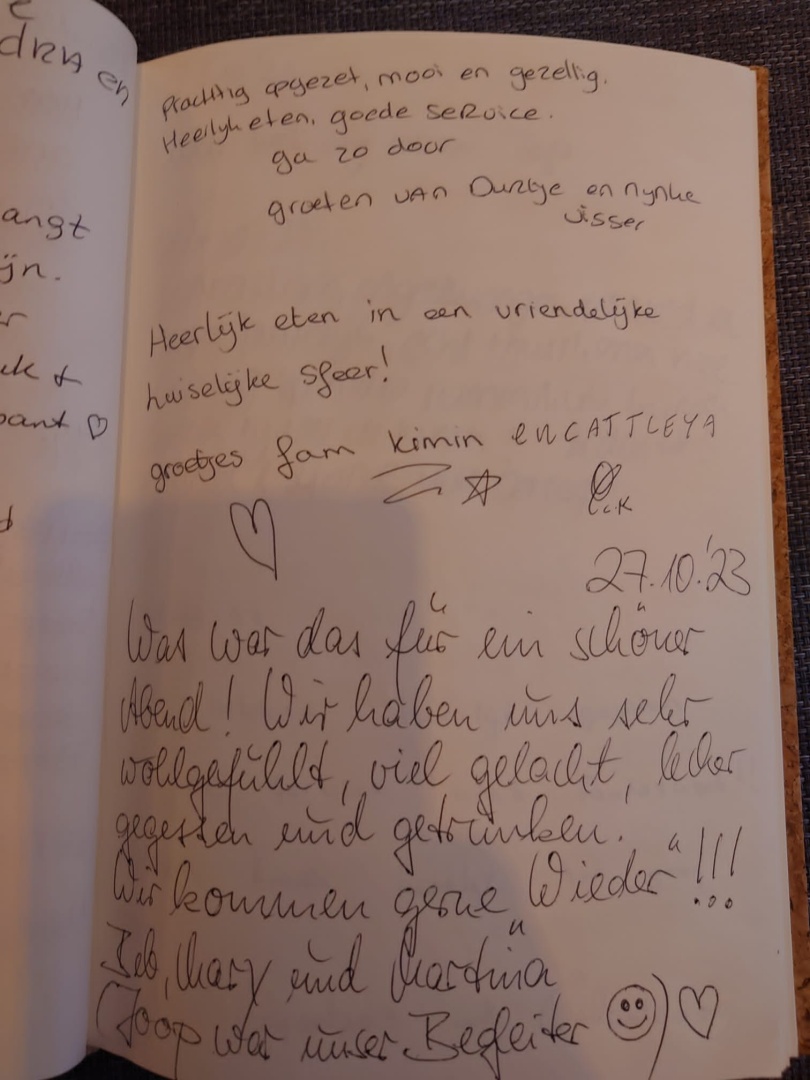 en
angt
ijn.
pant ♡
prachtig opgezet, mooi en gezellig.
Heerlyk eten, goede service.
ga zo door
groeten van en nynke
visser
Heerlijk eten in een vriendelijke
huiselijke sfeer!
groetjes fam kimin en CATTLEYA
27.10.'23
Was war das für ein schöner
Abend! Wir haben uns sehr
wohlgefühlt, viel gelacht, lecker
gegessen und getrunken.
Wir kommen gerne "Wieder"!!!
Mary und Martina
(Joop war unser Begleiter ☺) ♡